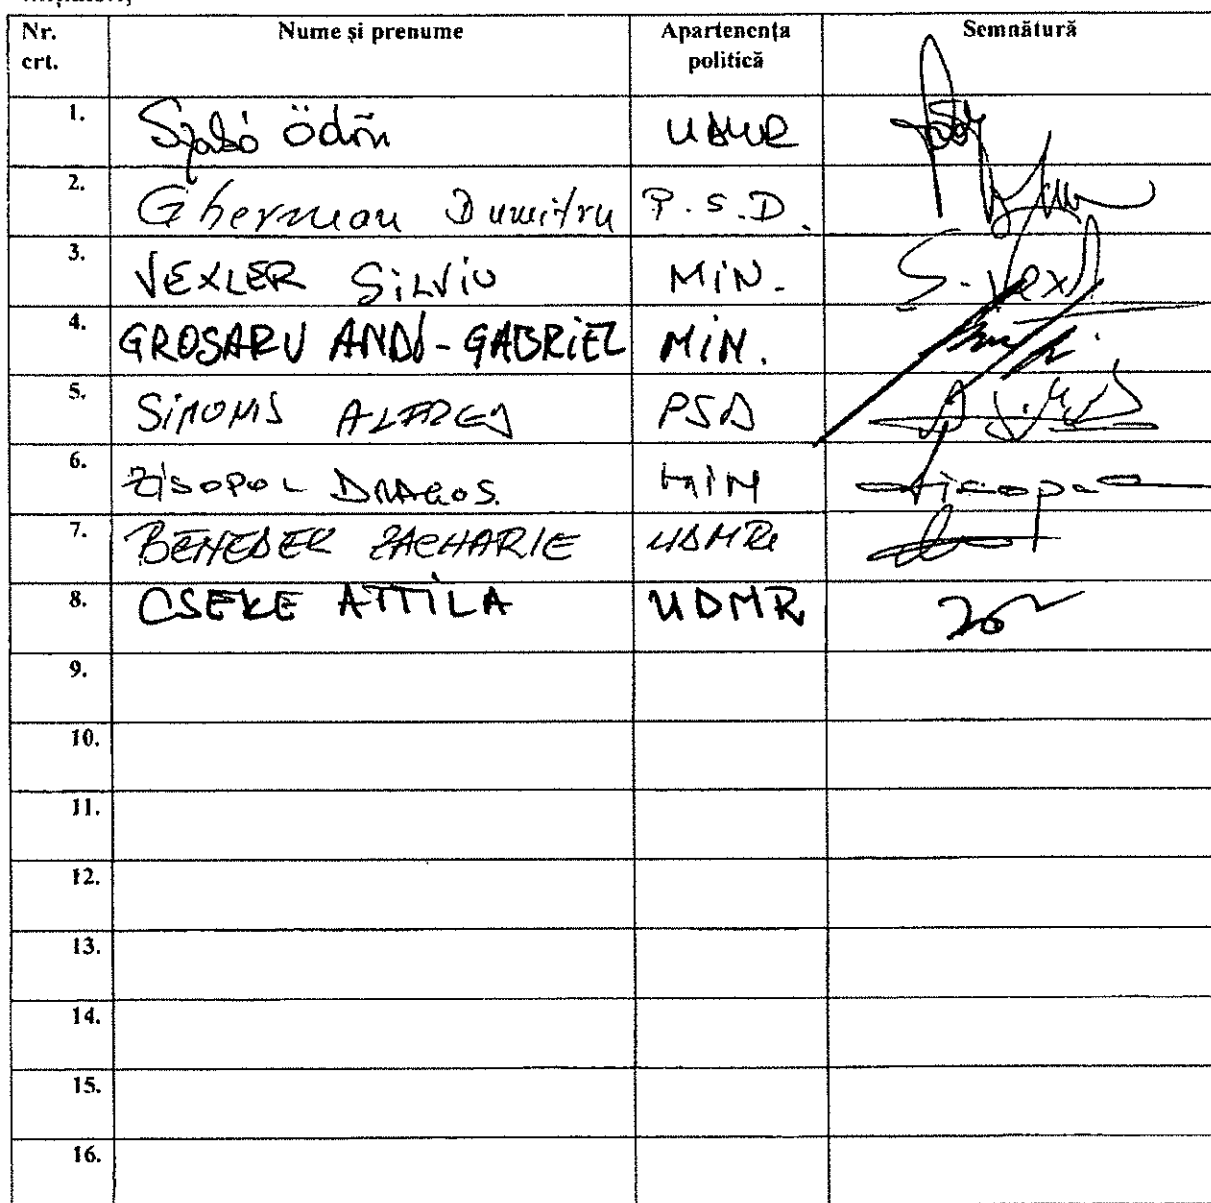 Nr. crt. Nume și prenume Apartenența politică Semnătură
1. Szabó Ödön UDMR
2. Gherman Dumitru P.S.D.
3. VEXLER SILVIU MIN. S. Vexl
4. GROSARU ANDI-GABRIEL MIN.
5. SIMONIS ALFRED PSD
6. ZISOPOL DRAGOS. MIN
7. BENEDEK ZACHARIE UDMR
8. CSEKE ATTILA UDMR
9.
10.
11.
12.
13.
14.
15.
16.